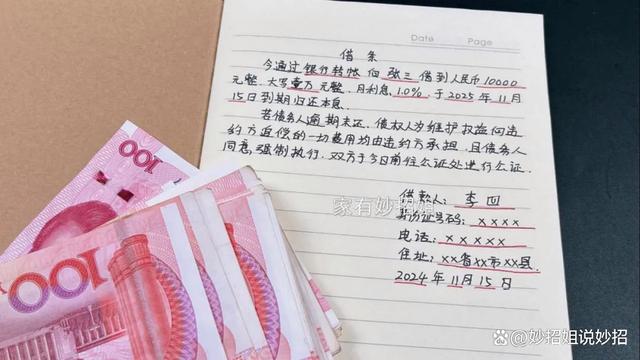 Date Page
借条
今通过银行转帐向张三借到人民币10000
元整,大写壹万元整,月利息1.0%,于2025年11月
15日到期归还本息。
若债务人逾期未还,债权人为维护权益向违
约方追偿的一切费用均由违约方承担,且债务人
同意强制执行,双方于今日前往公证处进行公证。
家有妙招姐
借款人:李四
身份证号码:××××
电话:×××××
住址:××省××市××县
2024年11月15日
100
100
@妙招姐说妙招